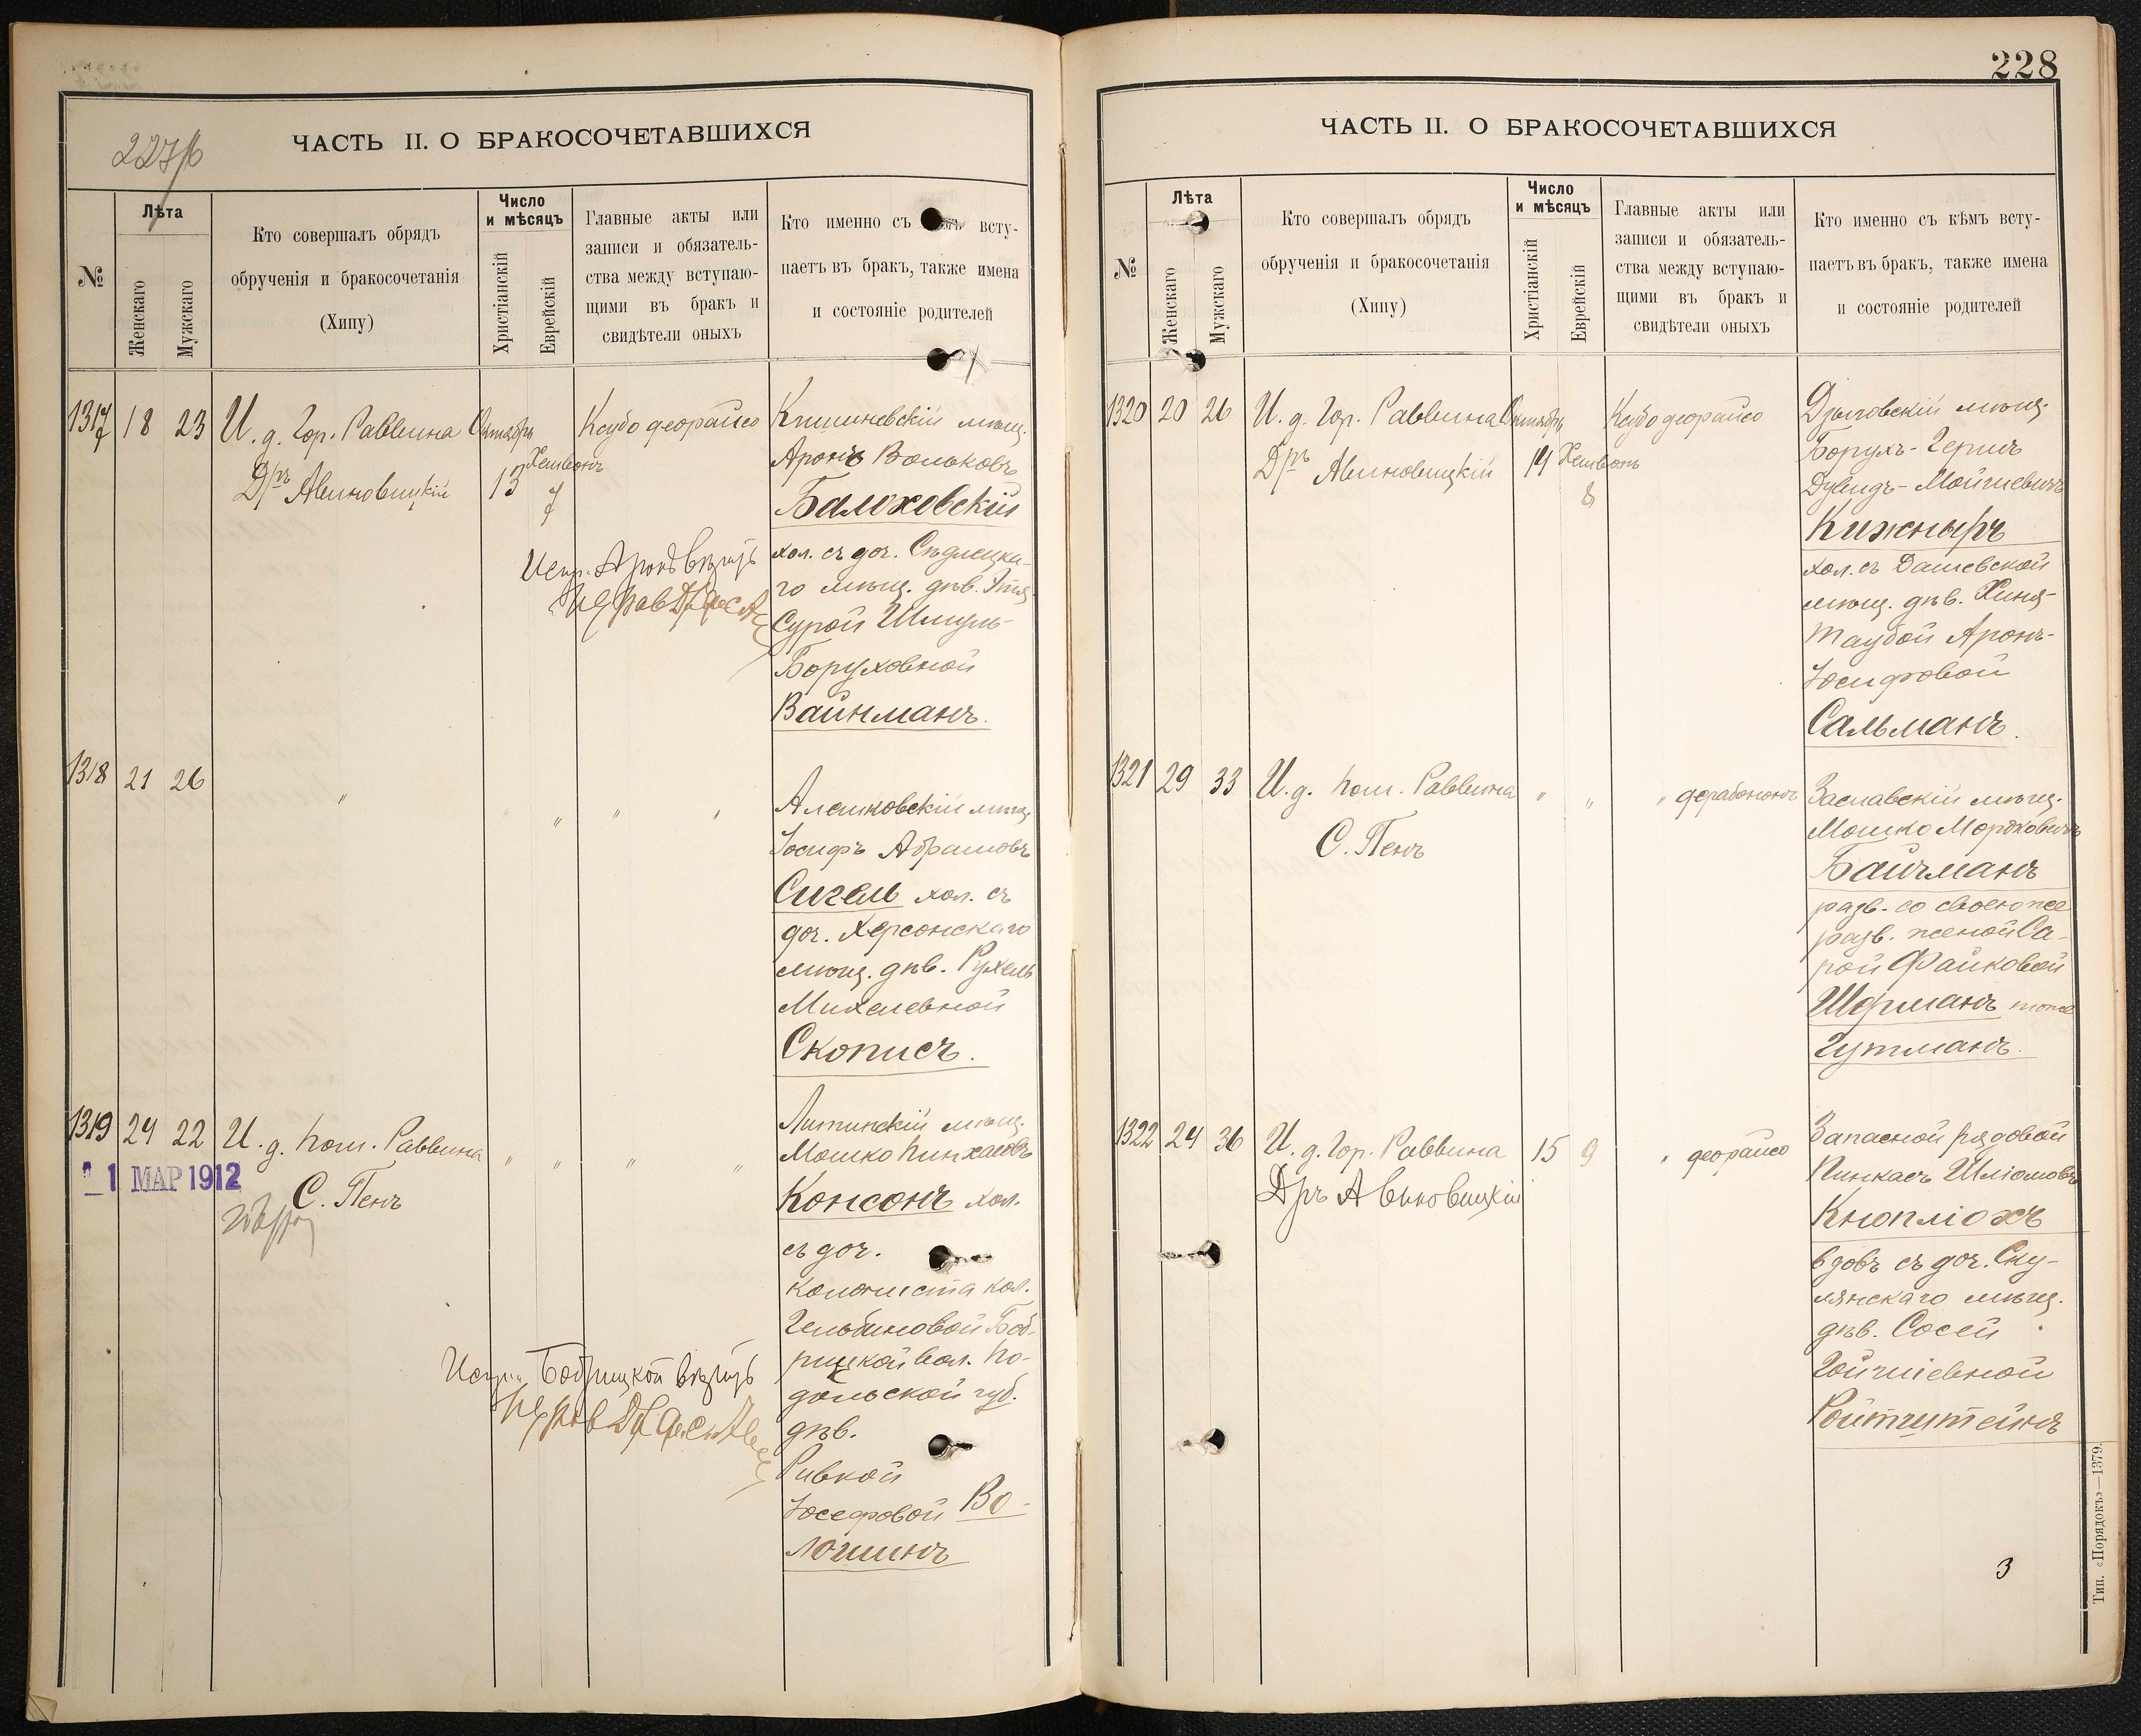 ЧАСТЬ II. О БРАКОСОЧЕТАВШИХСЯ
№
Лѣта
Женскаго
Мужскаго
Кто совершалъ обрядъ
обрученія и бракосочетанія
(Хипу)
Число
и мѣсяцъ
Христіанскій
Еврейскій
Главные акты или
записи и обязатель-
ства между вступаю-
щими въ бракъ и
свидѣтели оныхъ
Кто именно съ всту-
паетъ въ бракъ, также имена
и состояніе родителей
1317 18 23
И. д. Гор. Раввина
Д/ръ Авиновицкій
Октябрь
13
Хешвонъ
7
Ксубо деорайсо
Кишиневскій мѣщ.
Аронъ Вольковъ
Балоховскій
хол. съ доч. Сѣдлецка-
го мѣщ. дѣв. Этя-
Сурой Шмуль-
Боруховной
Вайнманъ.
Испр. Аронъ вѣрить
1318 21 26
" " " " "
Алешковскій мѣщ.
Іосифъ Абрамовъ
Сигель хол. съ
доч. Херсонскаго
мѣщ. дѣв. Рухель
Михелевной
Скописъ.
1319 24 22
И. д. пом. Раввина
С. Пенъ
1 МАР 1912
" " " "
Литинскій мѣщ.
Мошко Пинхасовъ
Консонъ хол.
съ доч.
колониста кол.
Гельбиновой Боб-
рицкой вол. По-
дольской губ.
дѣв.
Ривкой
Іосефовой Во-
лошинъ
Испр. Бобрицкой вѣрить
228
ЧАСТЬ II. О БРАКОСОЧЕТАВШИХСЯ
№
Лѣта
Женскаго
Мужскаго
Кто совершалъ обрядъ
обрученія и бракосочетанія
(Хипу)
Число
и мѣсяцъ
Христіанскій
Еврейскій
Главные акты или
записи и обязатель-
ства между вступаю-
щими въ бракъ и
свидѣтели оныхъ
Кто именно съ кѣмъ всту-
паетъ въ бракъ, также имена
и состояніе родителей
1320 20 26
И. д. Гор. Раввина
Д/ръ Авиновицкій
Октябрь
14
Хешвонъ
8
Ксубо деорайсо
Дзыговскій мѣщ.
Борухъ-Герш
Дувидъ-Мойшевичъ
Кижныръ
хол. съ Дашевской
мѣщ. дѣв. Хиня-
Таубой Аронъ-
Іосифовой
Сальманъ.
1321 29 33
И. д. пом. Раввина
С. Пенъ
" " " дерабононъ
Заславскій мѣщ.
Мошко Мордковичъ
Байчманъ
разв. со своею же
разв. женой Са-
рой Файковой
Шорманъ тоже
Гутманъ.
1322 24 36
И. д. Гор. Раввина
Д/ръ Авиновицкій
15 9
" деорайсо
Запасной рядовой
Пинкасъ Шліомовъ
Кнопліохъ
вдовъ съ доч. Ску-
лянскаго мѣщ.
дѣв. Сосей
Гойчшевной
Ройтштейнъ
3
Тип. «Порядокъ»—1379.